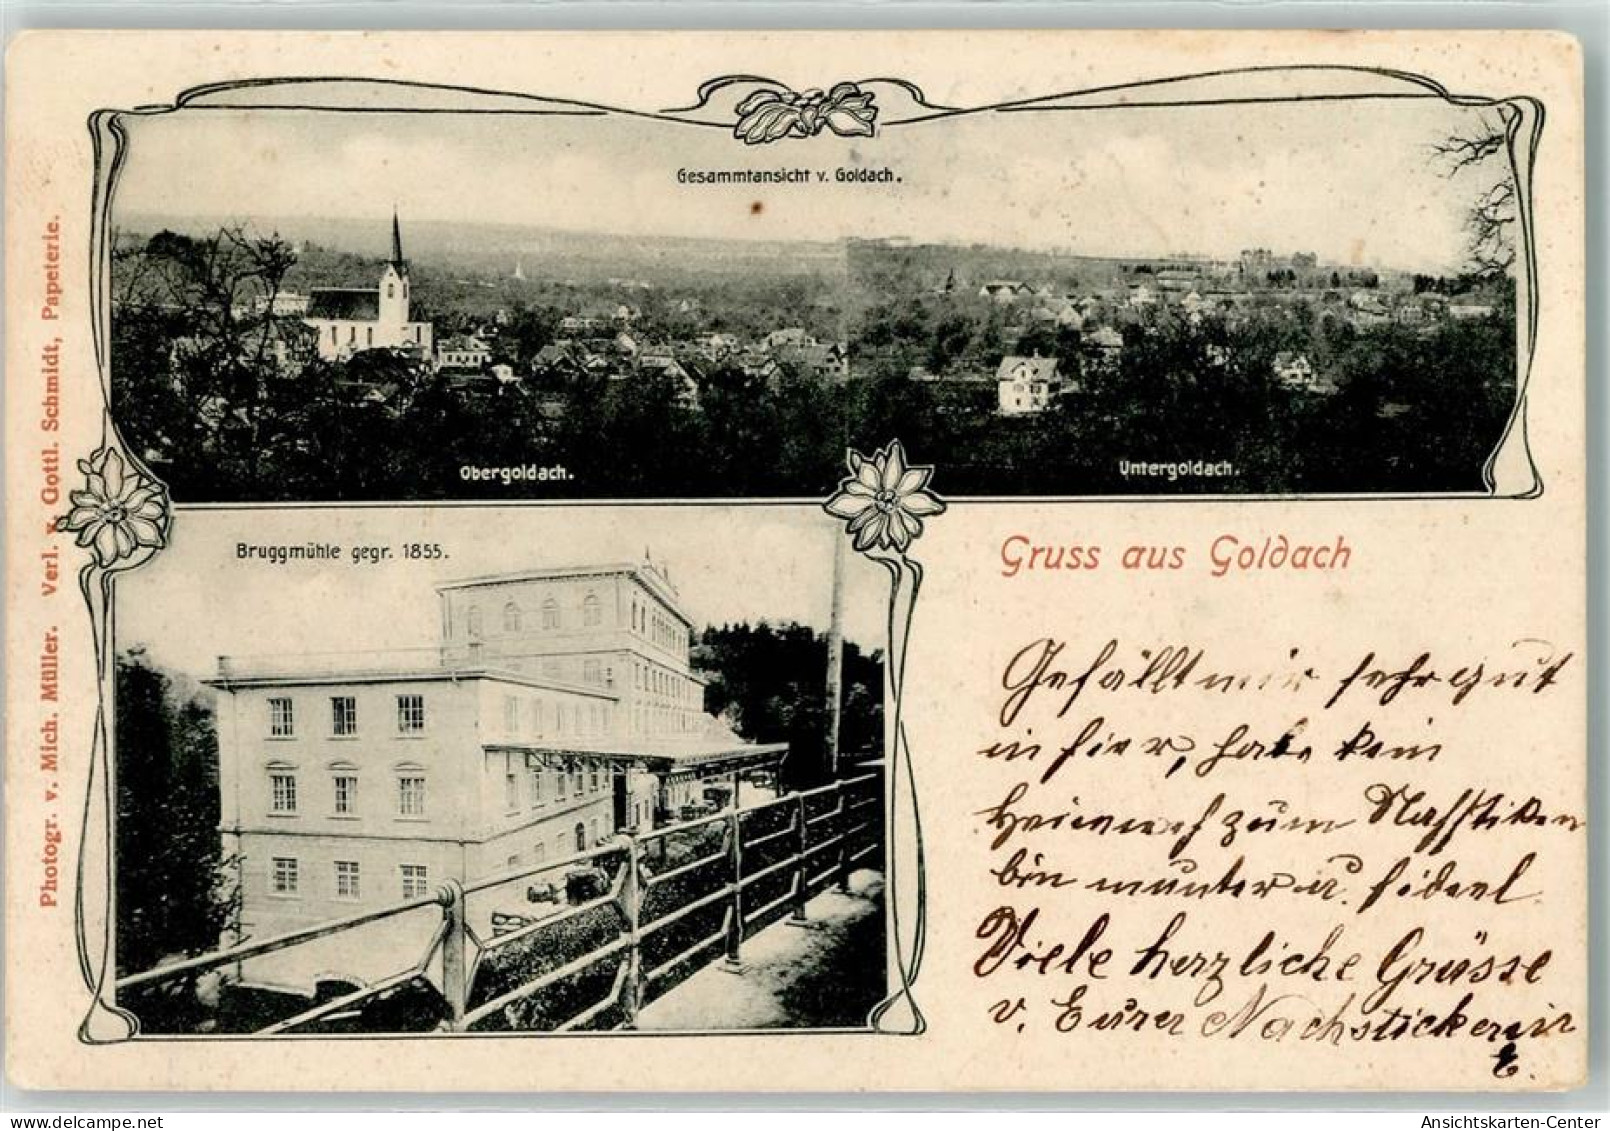 Gesammtansicht v. Goldach.
Obergoldach.
Untergoldach.
Bruggmühle gegr. 1855.
Gruss aus Goldach
Gefällt mir sehr gut
in hier, habe kein
Heimweh zum Nachsticken
bin munter u. fideel
Viele herzliche Grüsse
v. Eurer Nachstickerin
E.
Photogr. v. Mich. Müller. Verl. v. Gottl. Schmidt, Papeterie.
delcampe.net
Ansichtskarten-Center